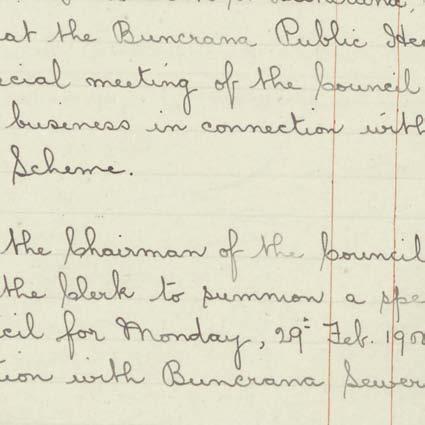 at the Buncrana Public Hea
ecial meeting of the Council
business in connection with
Scheme.
the Chairman of the Council
the Clerk to summon a spe
cil for Monday, 29th Feb. 190
tion with Buncrana Sewer